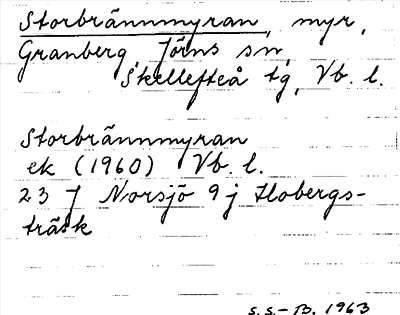 Storbrännmyran, myr,
Granberg, Jörns sn,
Skellefteå tg, Vb. l.
Storbrännmyran
ek (1960) Vb. l.
23 J Norsjö 9 j Hobergs-
träsk
S.S.-B. 1963